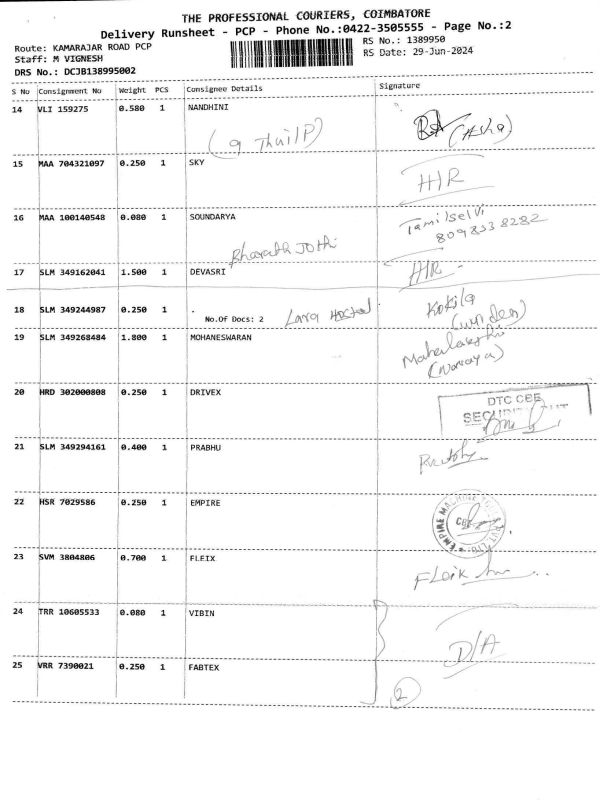 THE PROFESSIONAL COURIERS, COIMBATORE
Delivery Runsheet - PCP - Phone No.:0422-3505555 - Page No.:2
Route: KAMARAJAR ROAD PCP
RS No.: 1389950
Staff: M VIGNESH
RS Date: 29-Jun-2024
DRS No.: DCJB138995002
S No Consignment No Weight PCS Consignee Details Signature
14 VLI 159275 0.580 1 NANDHINI
(Asha)
15 MAA 704321097 0.250 1 SKY
H/R
16 MAA 100140548 0.080 1 SOUNDARYA
Tamilselvi
8098338282
Bharath Jothi
17 SLM 349162041 1.500 1 DEVASRI H/R
18 SLM 349244987 0.250 1 .
No.Of Docs: 2
Kokila
(warden)
19 SLM 349268484 1.800 1 MOHANESWARAN
Mahalakshmi
20 HRD 302000808 0.250 1 DRIVEX
DTC CBE
21 SLM 349294161 0.400 1 PRABHU
22 HSR 7029586 0.250 1 EMPIRE
EMPIRE MACHINE
CBE
23 SVM 3804806 0.700 1 FLEIX
Fleix
24 TRR 10605533 0.080 1 VIBIN
D/A
25 VRR 7390021 0.250 1 FABTEX
2